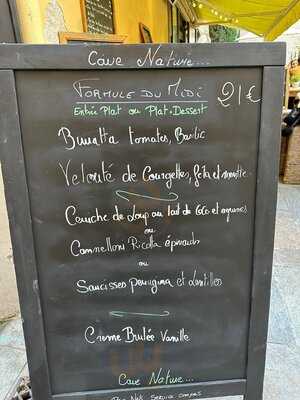 Cave Nature...
Formule du Midi 21€
Entrée Plat ou Plat + Dessert
Burratta tomates, Basilic
Velouté de Courgettes, feta et menthe
Ceviche de Loup au lait de Coco et agrumes
ou
Cannelloni Ricotta épinards
ou
Saucisses perugina et lentilles
Creme Brulée Vanille
Cave Nature...
Prix Nets Service compris